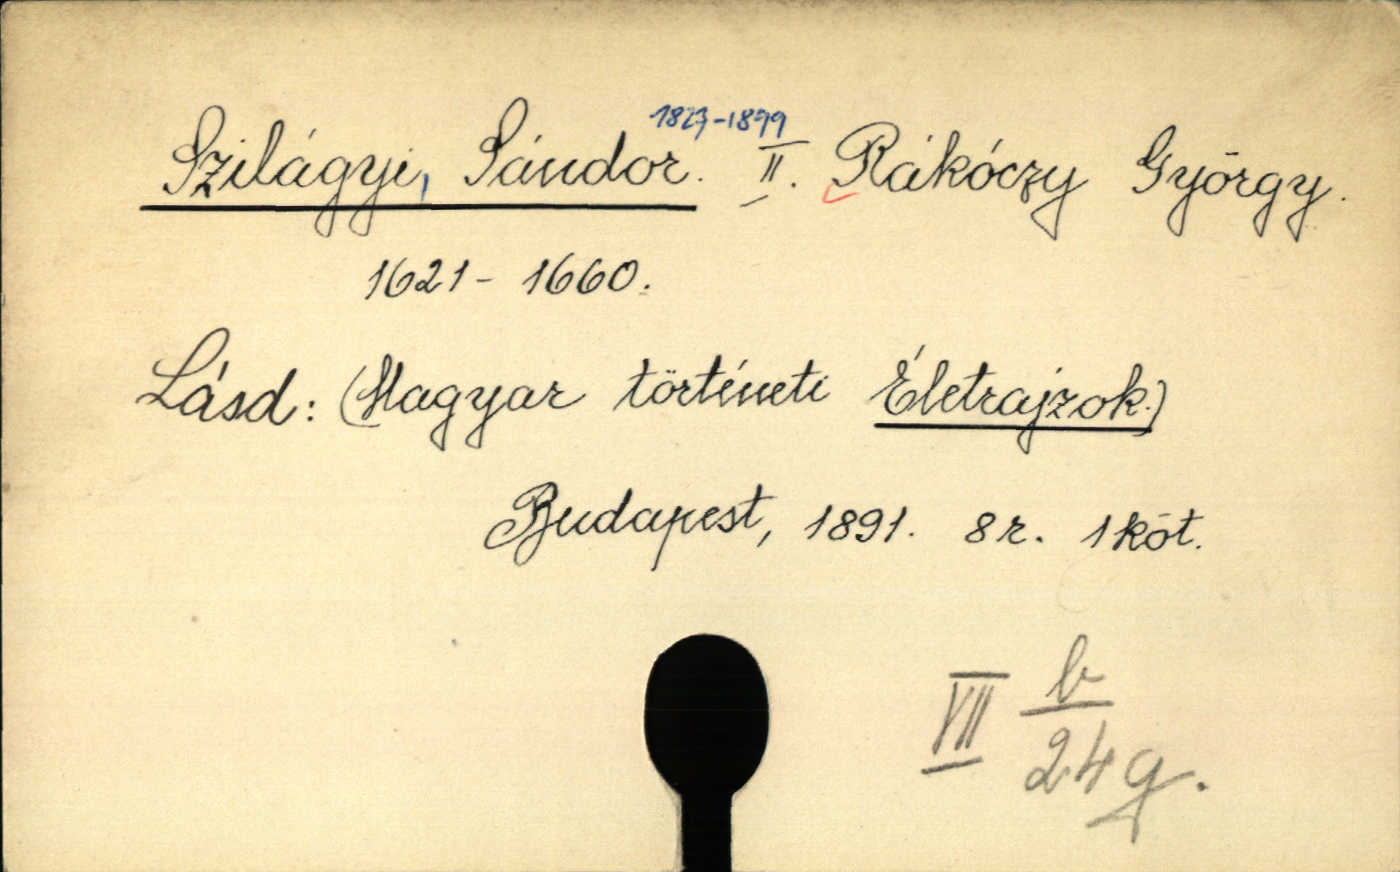 1827-1899
Szilágyi, Sándor. II. Rákóczy György.
1621-1660.
Lásd: (Magyar történeti Életrajzok.)
Budapest, 1891. 8r. 1 köt.
VII b
24 g.